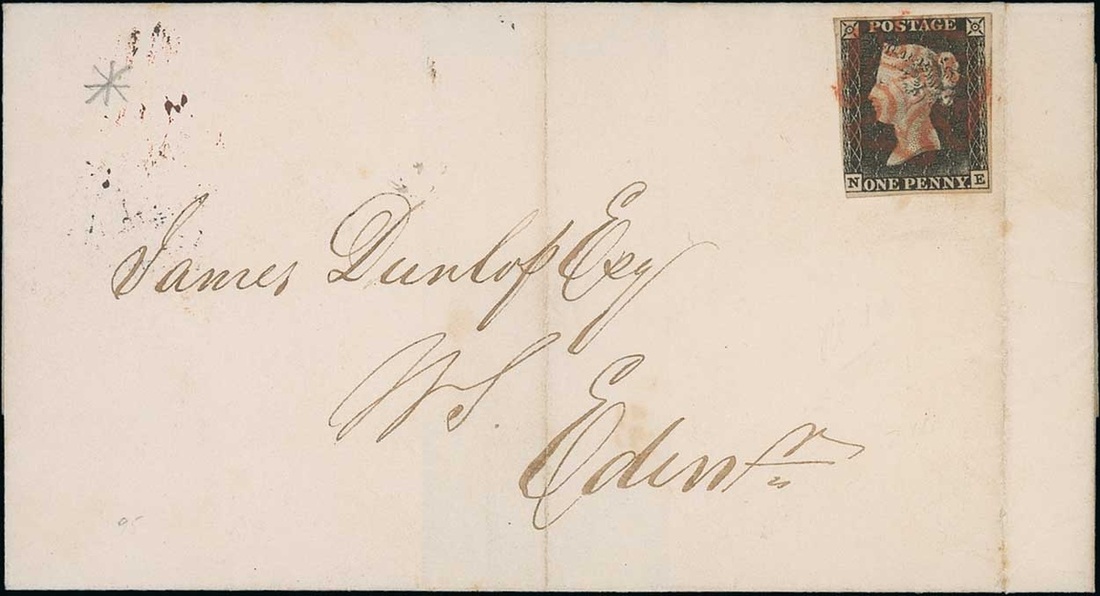 POSTAGE
N ONE PENNY E
James Dunlop Esq
W.S.
Edinr